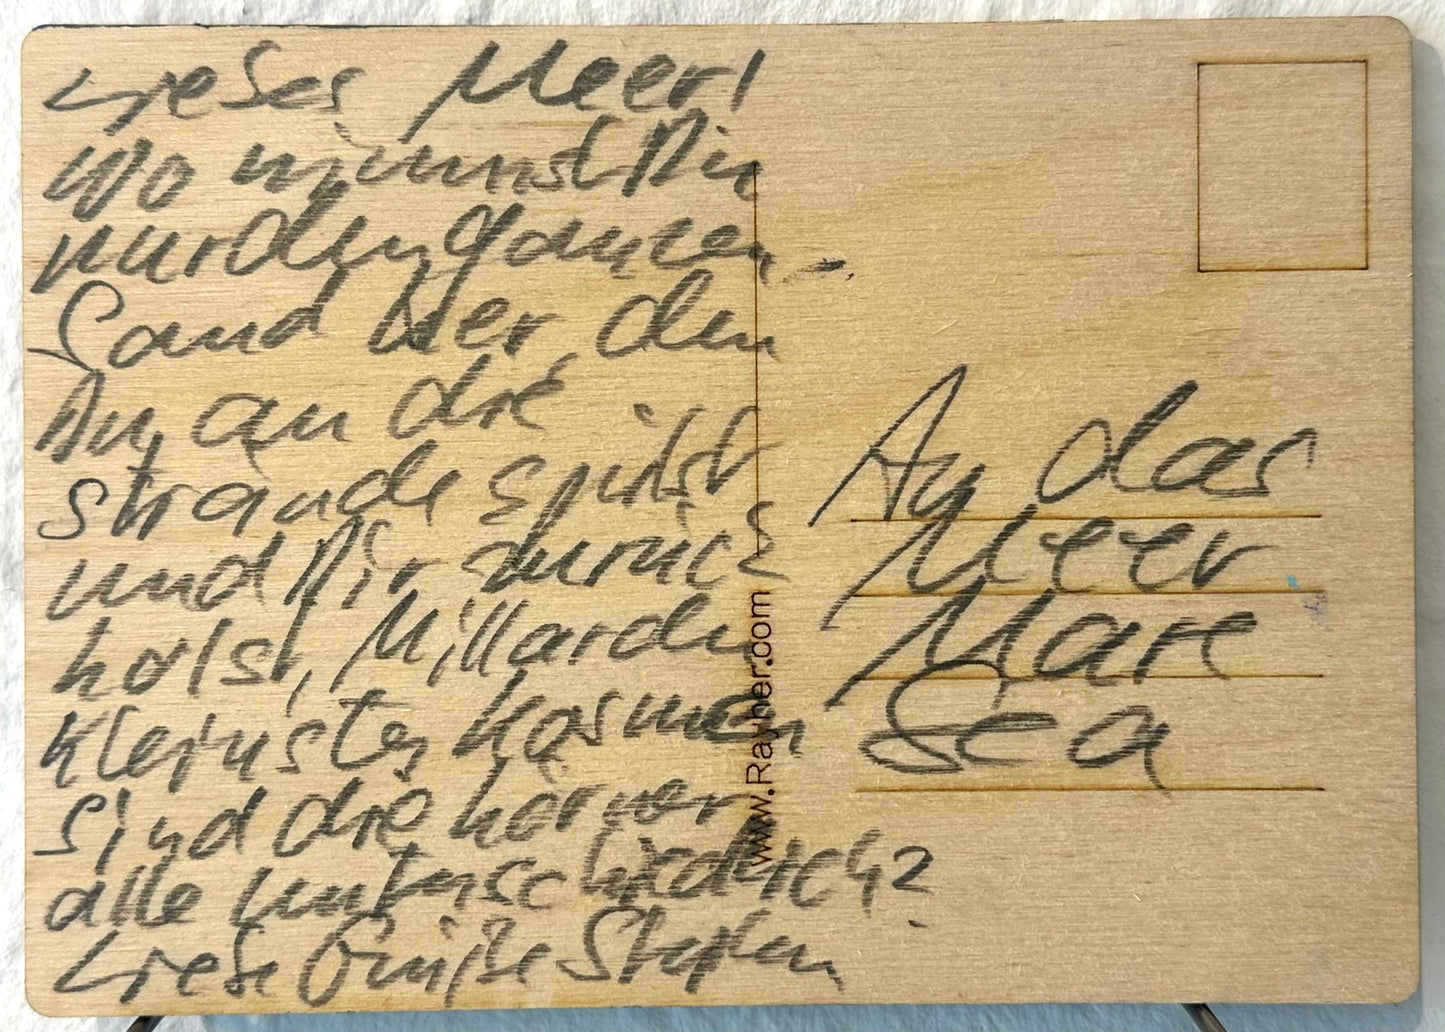 Liebes Meer!
Wo nimmst Du
nur den ganzen
Sand her, den
Du an die
Strände spülst
und Dir zurück
holst, Millarden
kleinster Kosmen
Sind die Körner
alle unterschiedlich?
Liebe Grüße Stephen
An das
Meer
Mare
Sea
www.Rayher.com